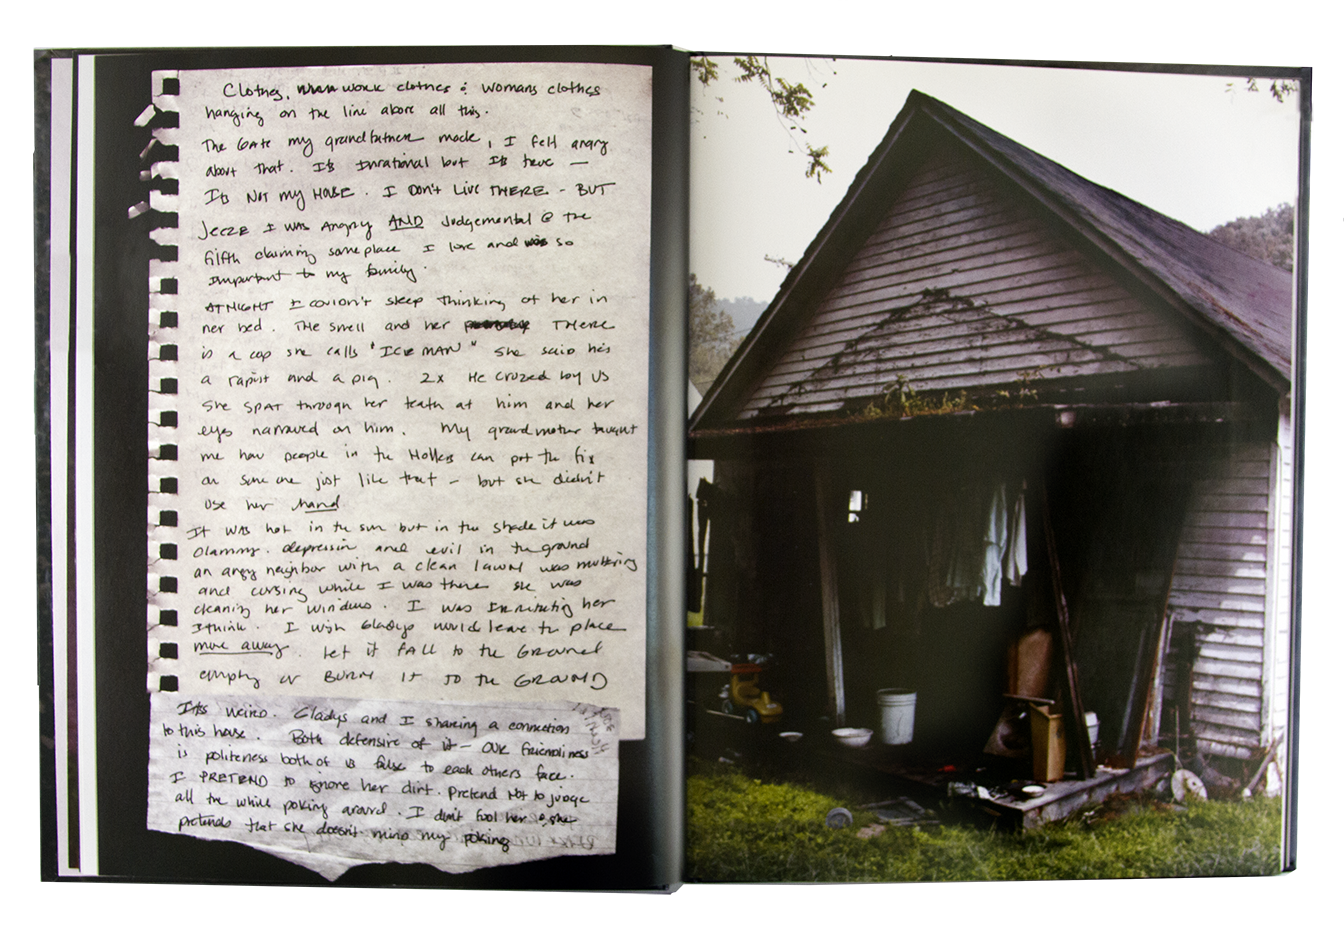 Clothes, work clothes & womans clothes
hanging on the line above all this.
The Gate my grandfather made, I felt angry
about that. Its Irrational but Its true —
Its Not my House. I Don't Live THERE - BUT
Jeeze I was Angry AND Judgemental @ the
filfth claiming someplace I love and so
Important to my family.
AT NIGHT I couldn't sleep thinking of her in
her bed. The smell and her THERE
is a cop she calls "ICE MAN" She said he's
a rapist and a pig. 2x He cruzed by us
She SPAT through her teath at him and her
eyes narrowed on him. My grandmother taught
me how people in the Hollers can put the fix
on some one just like that - but she didn't
use her hand
It was hot in the sun but in the shade it was
clammy. depression and evil in the ground
an angry neighbor with a clean lawn was muttering
and cursing while I was there she was
cleaning her windows. I was Irritating her
I think. I wish Gladys would leave the place
move away. Let it FALL to the GROUND
empty or BURN IT TO the GROUND
Its weird. Gladys and I sharing a connection
to this house. Both defensive of it - our friendliness
is politeness both of us false to each others face.
I PRETEND to ignore her dirt. Pretend Not to judge
all the while poking around. I don't fool her & she
pretends that she doesn't mind my poking